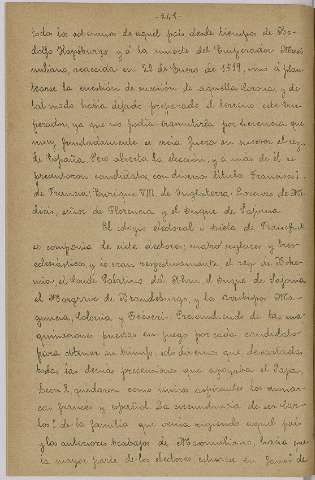 todos los soberanos de aquel país desde tiempos de Ro-
dolfo Hapsburgo, y á la muerte del Emperador Maxi-
miliano, acaecida en 22 de Enero de 1519, vino á plan-
tearse la cuestión de sucesión de aquella Corona, y de
tal modo había dejado preparado el terreno este Em-
perador, ya que no podía transmitirla por herencia que
muy fundadamente se creía fuera su sucesor el rey
de España. Pero abierta la elección, y á mas de él se
presentaron candidatos, con diverso título Francisco I
de Francia, Enrique VIII de Inglaterra, Lorenzo de Mé-
dicis, señor de Florencia y el Duque de Sajonia.
El colegio electoral ó dieta de Francfort
se componía de siete electores; cuatro seglares y tres
eclesiásticos, y lo eran respectivamente el rey de Bohe-
mia, el Conde Palatino del Rhin, el Duque de Sajonia
el Margrave de Brandeburgo, y los Arzobispos Ma-
guncia, Colonia y Tréveris. Prescindiendo de las ma-
quinaciones puestas en juego por cada candidato
para obtener su triunfo, solo diremos que descartados
todos los demás pretendientes que apoyaba el Papa,
León X, quedaron como únicos aspirantes los monar-
cas francés y español. La circunstancia de ser Car-
los de la familia que venía rigiendo aquel país
y los anteriores trabajos de Maximiliano, hacía que
la mayor parte de los electores estuviese en favor de